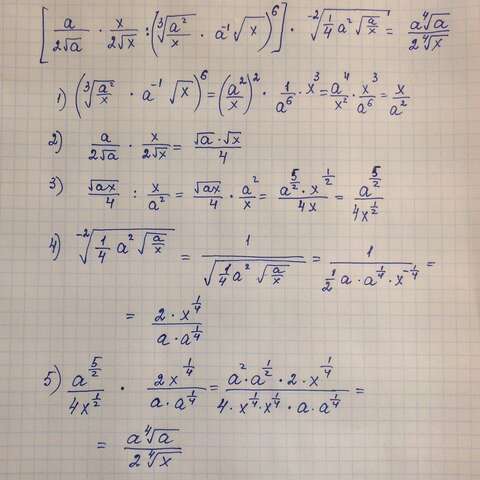 [a/(2√a) · x/(2√x) : (∛(a²/x) · a⁻¹ √x)⁶] · ⁻²√(1/4 a² √(a/x)) = a⁴√a / (2⁴√x)
1) (∛(a²/x) · a⁻¹ √x)⁶ = (a²/x)² · 1/a⁶ · x³ = a⁴/x² · x³/a⁶ = x/a²
2) a/(2√a) · x/(2√x) = √a · √x / 4
3) √ax/4 : x/a² = √ax/4 · a²/x = a^(5/2) · x^(1/2) / 4x = a^(5/2) / 4x^(1/2)
4) ⁻²√(1/4 a² √(a/x)) = 1/√(1/4 a² √(a/x)) = 1/(1/2 a · a^(1/4) · x^(-1/4)) =
= 2 · x^(1/4) / (a · a^(1/4))
5) a^(5/2) / 4x^(1/2) · 2x^(1/4) / (a · a^(1/4)) = a² · a^(1/2) · 2 · x^(1/4) / (4 · x^(1/4) · x^(1/4) · a · a^(1/4)) =
= a⁴√a / (2⁴√x)